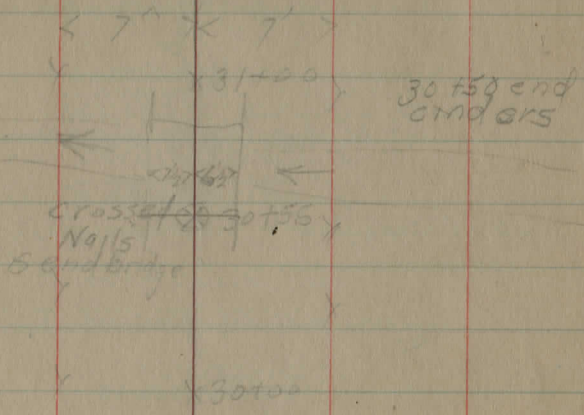 7' 7'
31+00
30+50 end
cinders
crossed 30+56
Nails
S end bridge
30+00